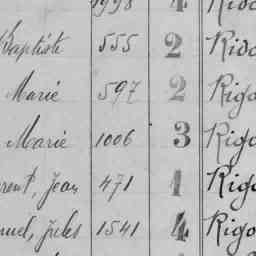 1998 4
Baptiste 555 2
Marie 597 2 Rigo
Marie 1006 3 Rigo
Jean 471 1 Rigo
Jules 1541 4 Rigo